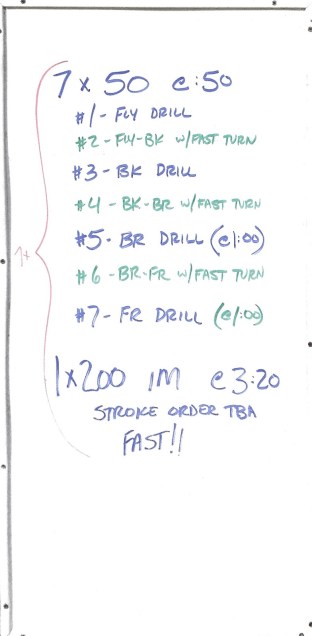 7 x 50 @:50
#1 - FLY DRILL
#2 - FLY-BK w/FAST TURN
#3 - BK DRILL
#4 - BK-BR w/FAST TURN
#5 - BR DRILL (@1:00)
#6 - BR-FR w/FAST TURN
#7 - FR DRILL (@1:00)
1x200 IM @3:20
STROKE ORDER TBA
FAST!!